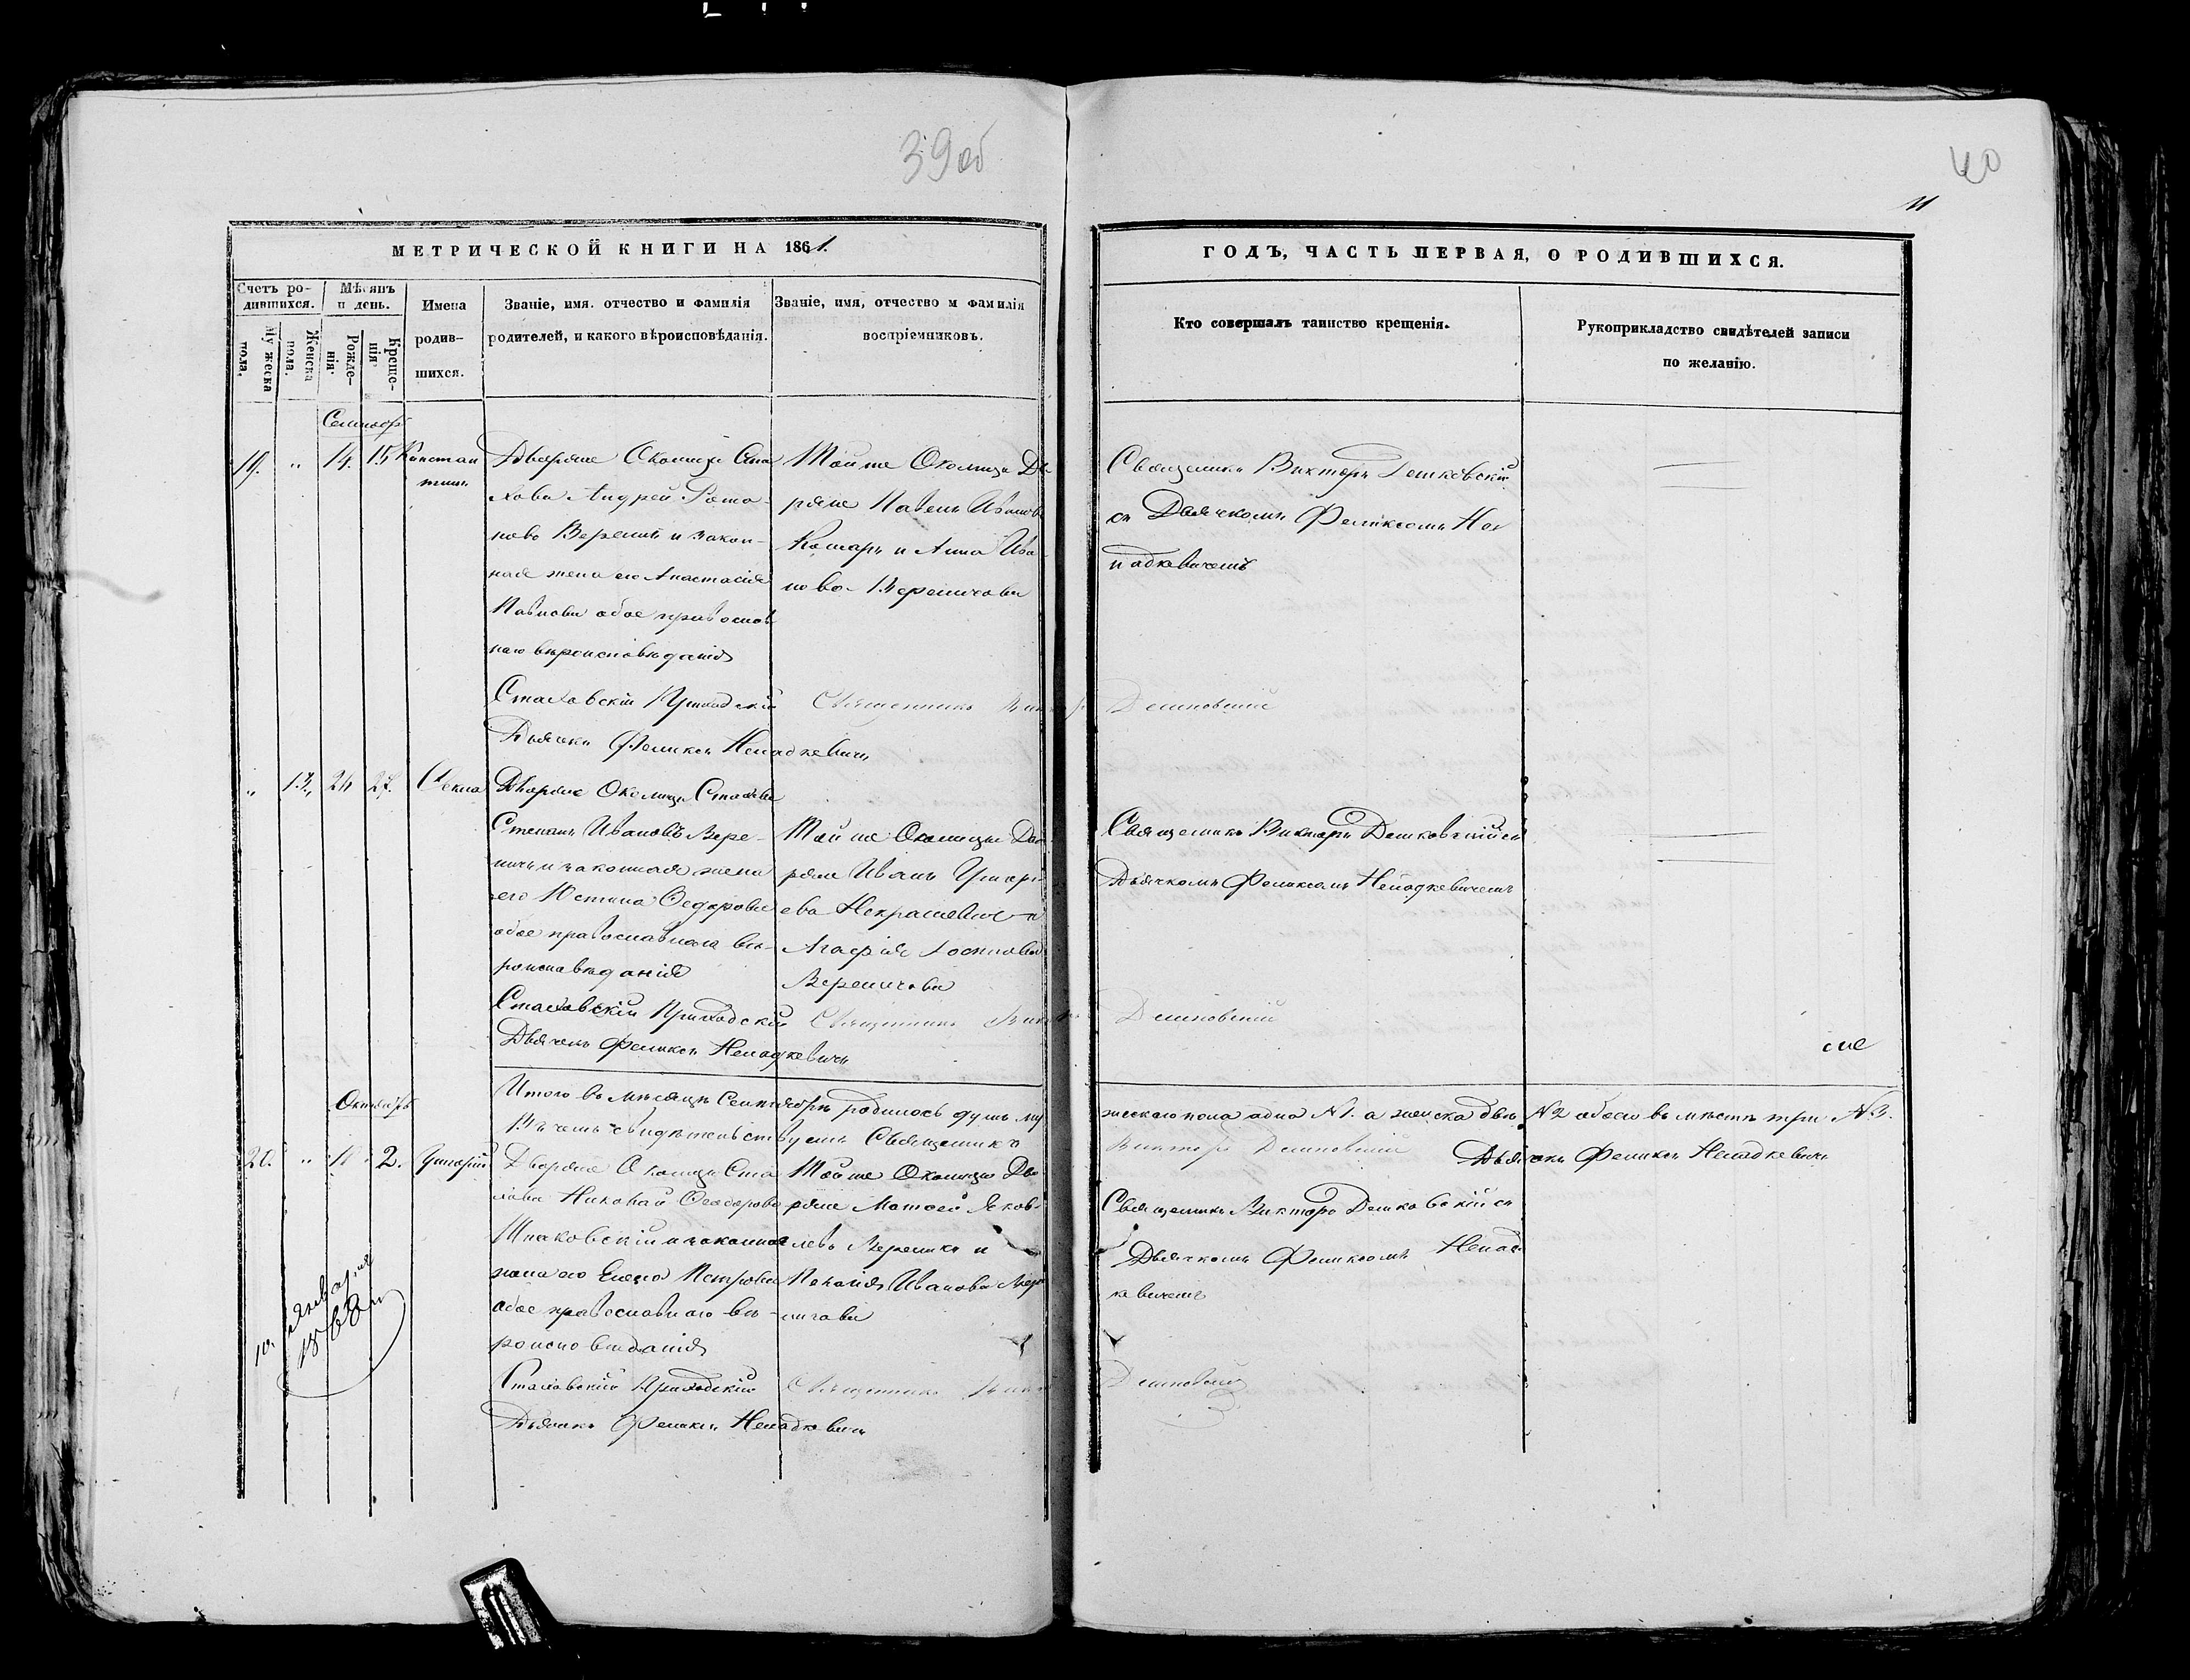 39об
40
11
МЕТРИЧЕСКОЙ КНИГИ НА 1861.
ГОДЪ, ЧАСТЬ ПЕРВАЯ, О РОДИВШИХСЯ.
Счетъ ро-
дившихся.
Мужеска
пола.
Женска
пола.
Мѣсяцъ
и день.
Рожде-
нія.
Креще-
нія.
Имена
родив-
шихся.
Званіе, имя, отчество и фамилія
родителей, и какого вѣроисповѣданія.
Званіе, имя, отчество и фамилія
воспріемниковъ.
Кто совершалъ таинство крещенія.
Рукоприкладство свидѣтелей записи
по желанію.
19. " 14. 15 Констан
тинъ
Дворяне Околицы Ста
хова Андрей Рома-
новъ Веренич и закон-
ная жена его Анастасія
Павлова обое православ
наго вѣроисповѣданія
Той же Околицы Дво
ряне Павелъ Ивановъ
Комаръ и Анна Ива
нова Вереничова
Священникъ Викторъ Дешковскій
съ Дьячкомъ Феликсомъ Не
падкевичемъ
Стаховскій Приходскій
Дьячекъ Феликсъ Непадкевичъ
Священникъ Викторъ Дешковскій
" 13. 24 27. Фекла
Дворяне Околицы Стахова
Степанъ Ивановъ Вере-
ничъ и законная жена
его Юстина Федорова
обое православнаго вѣ-
роисповѣданія
Той же Околицы Дво
ряне Иванъ Григорь
евъ Некрашевич и
Агафія Іосифова
Вереничова
Священникъ Викторъ Дешковскій съ
Дьячкомъ Феликсомъ Непадкевичемъ
Стаховскій Приходскій
Дьячекъ Феликсъ Непадкевичъ
Священникъ Викторъ Дешковскій
Итого въ мѣсяцѣ Сентябрѣ родилось душъ му
жескаго пола одна N 1. а женска двѣ N 2 обоего въ мѣстѣ три N 3.
Въ чемъ свидѣтельствуемъ Священникъ
Викторъ Дешковскій Дьячокъ Феликсъ Непадкевичъ
Октябрь
20. " 2. Григорій
Дворяне Околицы Ста
хова Николай Феодоровъ
Шпаковскій и законная
жена его Елена Петрова
обое православнаго вѣ-
роисповѣданія
Той же Околицы Дво
ряне Матвей Яков-
левъ Вереничъ и
Пелагія Иванова Вере
ничова
Священникъ Викторъ Дешковскій съ
Дьячкомъ Феликсомъ Непад
кевичемъ
10. Января
1868
Стаховскій Приходскій
Дьячекъ Феликсъ Непадкевичъ
Священникъ Викторъ Дешковскій